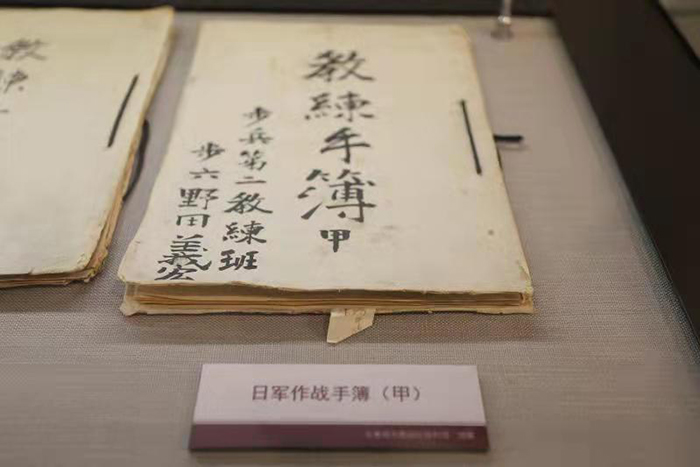 教練手簿 甲
步兵第二教練班
步六 野田義宏
教
日军作战手簿（甲）